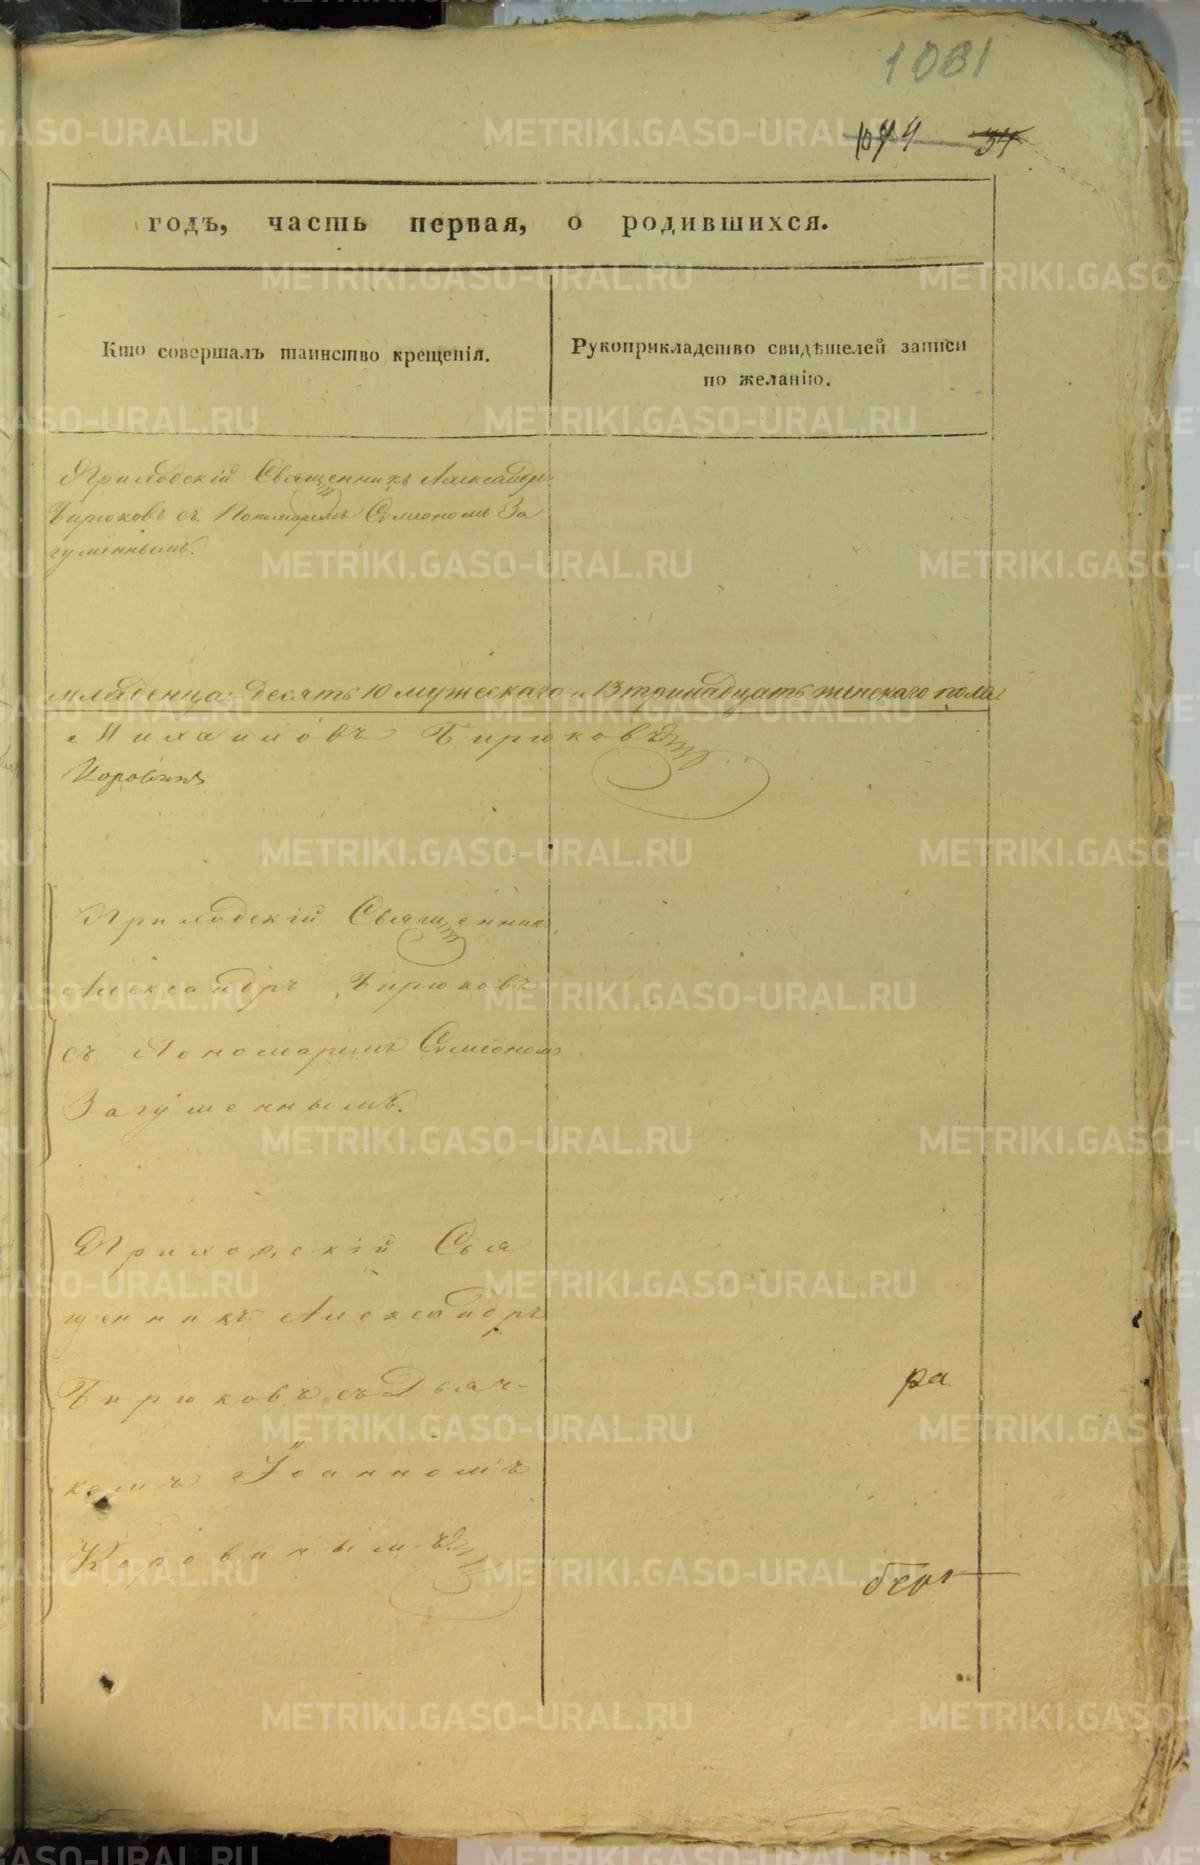 1081
1074 34
годъ, часть первая, о родившихся.
Кто совершалъ таинство крещенія.
Рукоприкладство свидѣтелей записи
по желанію.
Приходскій Священникъ Александръ
Бирюковъ съ Пономаремъ Симеономъ За
гуменнымъ.
младенца: десять 10 мужескаго и 13 тринадцать женскаго пола
Михаиловъ Бирюковъ
Коровинъ
Приходскій Священникъ
Александръ Бирюковъ
съ Пономаремъ Симеономъ
Загуменнымъ.
Приходскій Свя
щенникъ Александръ
Бирюковъ съ Дьяч-
комъ Іоанномъ
Коровинымъ
ра
METRIKI.GASO-URAL.RU